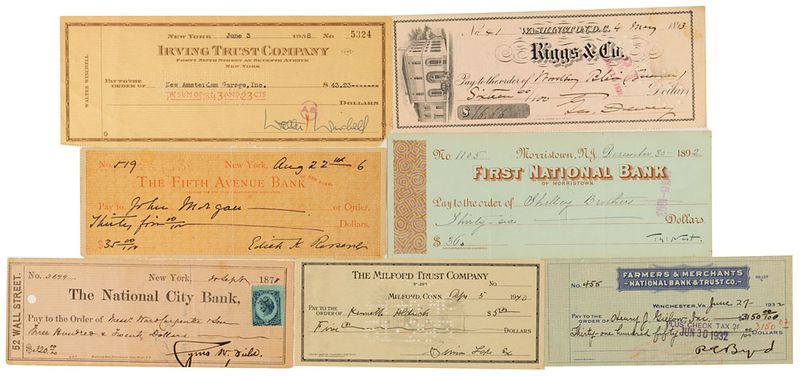 NEW YORK June 3 1938 No 5324
IRVING TRUST COMPANY
FORTY NINTH STREET AT SEVENTH AVENUE
NEW YORK
WALTER WINCHELL
PAY TO THE
ORDER OF New Amsterdam Garage, Inc. $ 43.23
THE SUM OF 43 AND 23 CTS
DOLLARS
Walter Winchell
9
No. 41 WASHINGTON, D.C. 4 May 18
Riggs & Co.
Pay to the order of
Sixteen 100 Dollars
Geo. Dewey
No. 519 New York, Aug 22nd 6
THE FIFTH AVENUE BANK
Pay to John Morgan or Order,
Thirty five 00/100 Dollars.
$35 00/100 Edith K Roosevelt
No. 1105 Morristown, N.J. December 30 1892
FIRST NATIONAL BANK
OF MORRISTOWN.
Pay to the order of Shelley Brothers
Thirty six Dollars
$ 36 Th: Nast.
52 WALL STREET.
No. 3694 New York, Sept 187
The National City Bank,
Pay to the Order of & Son
Three Hundred & Twenty Dollars
$320.00 Cyrus W. Field.
THE MILFORD TRUST COMPANY
51-291
No
MILFORD, CONN Apr 5 1940
PAY TO THE
ORDER OF Kenneth Aldrich $5.00
Five DOLLARS
Simon Lake
No. 455
FARMERS & MERCHANTS
NATIONAL BANK & TRUST CO.
WINCHESTER, VA. June 29- 1932
PAY TO THE
ORDER OF Henry J. Gielow Inc $3150 00/100
Thirty-one hundred fifty DOLLARS
PLUS CHECK TAX 2¢
3150
JUN 30 1932
R E Byrd